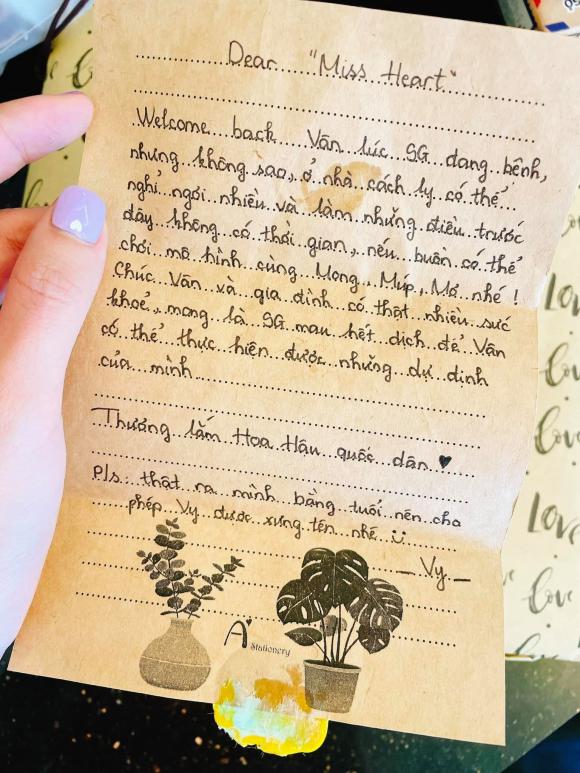 Dear "Miss Heart"
Welcome back Vân lúc SG đang bệnh,
nhưng không sao, ở nhà cách ly có thể
nghỉ ngơi nhiều và làm những điều trước
đây không có thời gian, nếu buồn có thể
chơi mô hình cùng Mong, Míp, Mơ nhé !
Chúc Vân và gia đình có thật nhiều sức
khoẻ, mong là SG mau hết dịch để Vân
có thể thực hiện được những dự định
của mình
Thương lắm Hoa Hậu quốc dân ♥
Pls thật ra mình bằng tuổi nên cho
phép Vy được xưng tên nhé
— Vy —
A Stationery
Love
Love
Love
Love
Love